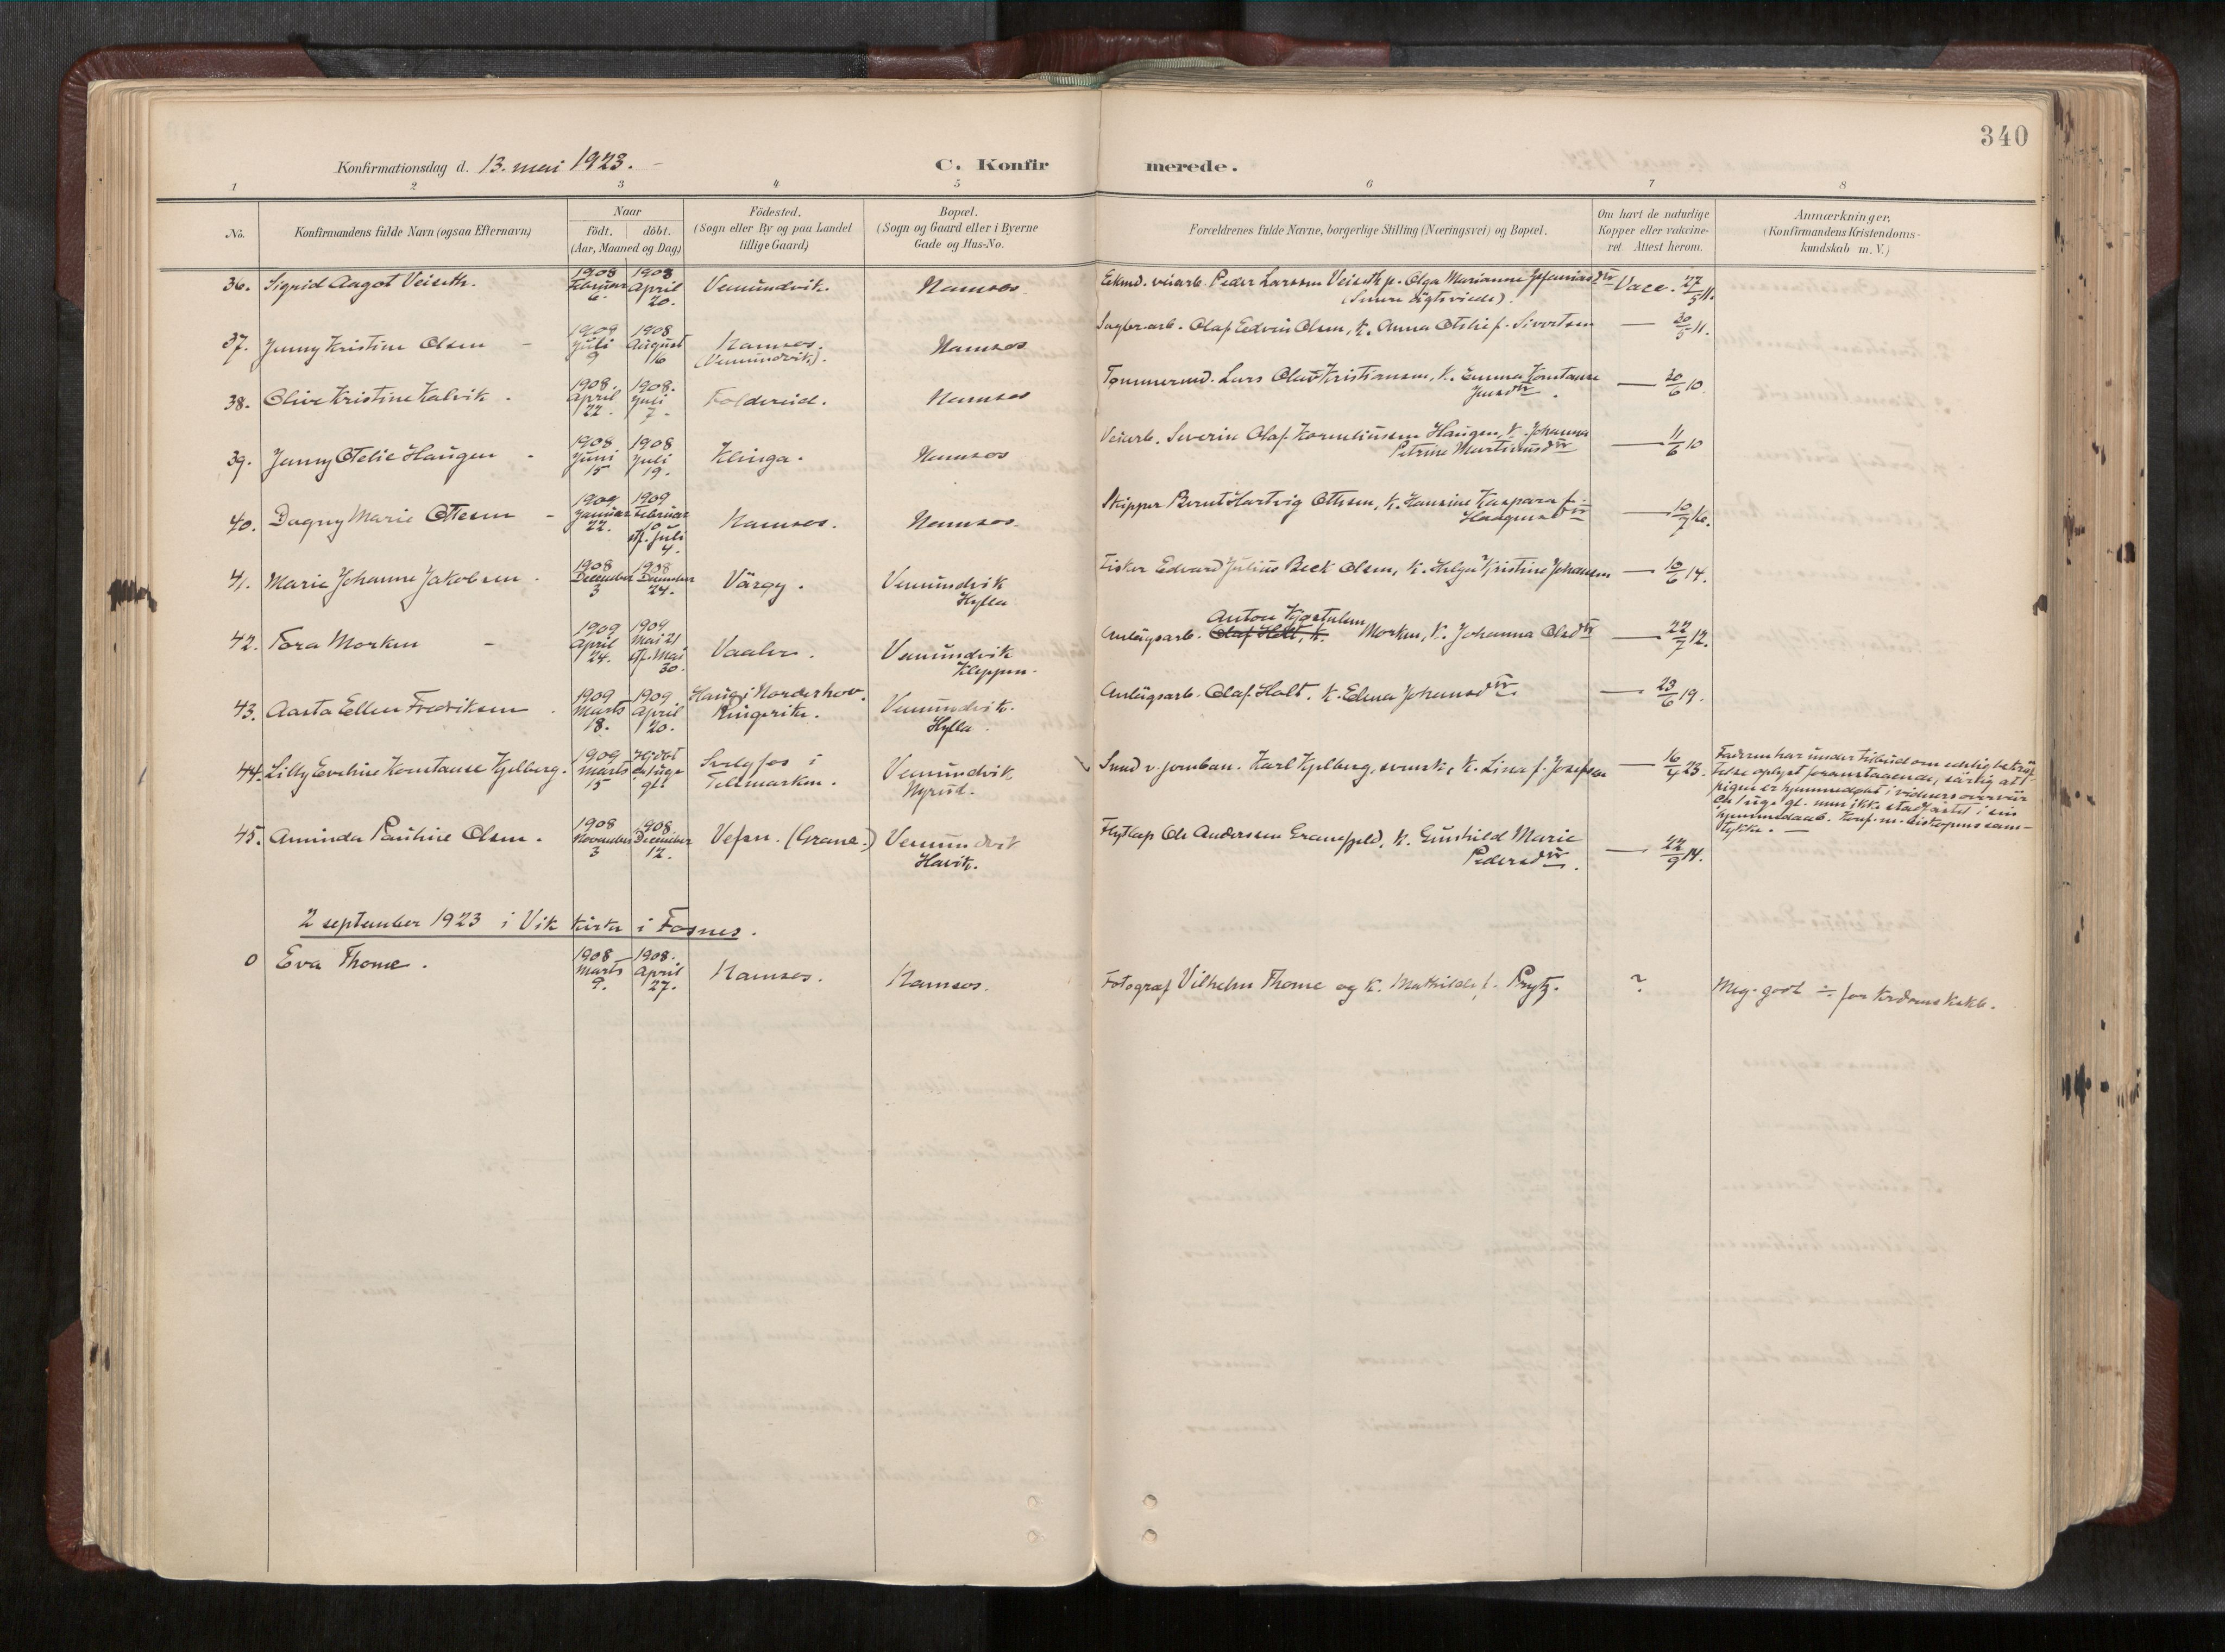 340
Konfirmationsdag d. 13. mai 1923.
C. Konfirmerede.
1 2 3 4 5 6 7 8
No.
Konfirmandens fulde Navn (ogsaa Efternavn)
Naar
Födt. döbt.
(Aar, Maaned og Dag)
Födested.
(Sogn eller By og paa Landet
tillige Gaard)
Bopæl.
(Sogn og Gaard eller i Byerne
Gade og Hus-No.
Forældrenes fulde Navne, borgerlige Stilling (Næringsvei) og Bopæl.
Om havt de naturlige
Kopper eller vakcine-
ret. Attest herom.
Anmærkninger.
(Konfirmandens Kristendoms-
kundskab m. V.)
36. Sigrid Aagot Veiseth. 1908 Februar 6. 1908 April 20. Vemundvik. Namsos. veiarb. Peder Larssen Veiseth, Olga Marianne Vacc. 27/5 11.
37. Jenny Kristine Olsen 1909 Juli 9 1908 August 16 Namsos. (Vemundvik). Namsos Olaf Edvin Olsen, K. Anna Otilie f. Sivertsen — 30/5 11.
38. Olive Kristine Kalvik. 1908. April 22. 1908. Juli 7. Foldereid. Namsos Tømmermd. Lars Olav Kristiansen, K. Emma Konstanse Jensdtr. — 20/6 10.
39. Jenny Otelie Haugen 1908 Juni 15 1908 Juli 19. Klinga. Namsos Veiarb. Severin Olaf Korneliussen Haugen, K. Johanna Petrine Martinusdtr — 11/6 10
40. Dagny Marie Ottesen 1909 Januar 22. 1909 Februar 10 stf. Juli 4. Namsos. Namsos. Skipper Bernt Hartvig Ottesen, K. Hansine Kaspara f. — 10/7
41. Marie Johanne Jakobsen. 1908 December 3 1908 December 24. Værøy. Vemundvik Hylla Fisker Edvard Julius Beck Olsen, K. Helga Kristine Johansen — 10/6 14.
42. Tora Morken 1909 April 24. 1909 Mai 21 stf. Mai 30. Vaaler. Vemundvik Kleppen. Anlægsarb. Olaf Holt, K. Anton Morken, K. Johanna Olsdtr — 22/7 12.
43. Aasta Ellen Fredriksen. 1909 Marts 18. 1909 April 20. Haug i Norderhov. Ringerike. Vemundvik. Hylla. Anlægsarb. Olaf Holt. K. Edna Johansdtr. — 23/6 19.
44. Lilly Eveline Konstanse Kjelberg. 1909 Marts 15 Hjdøbt en uge gl. Svelgfos i Telemarken. Vemundvik Nyrud. Smed v. jernban. Karl Kjelberg, svensk, K. Lina f. Josefsen — 16/4 23.
Faderen har under tilbud om edelig bekræf-
telse oplyst foranstaaende, særlig at
pigen er hjemmedøbt i vidners overvær
en uge gl. men ikke stadfæstet i sin
hjemmedaab. Konf. m. biskopens sam-
tykke. —
45. Aminda Pauline Olsen. 1908 November 3 1908. December 12. Vefsn. (Grane.) Vemundvik Havik. Ole Anderssen Granefjeld, K. Gunhild Marie Pedersdtr. — 22/9 14.
2 september 1923 i Vik kirke i Fosnes.
0 Eva Thome. 1908 Marts 9. 1908. April 27. Namsos. Namsos. Fotograf Vilhelm Thome og K. Mathilde f. Prytz. ? Meg. godt